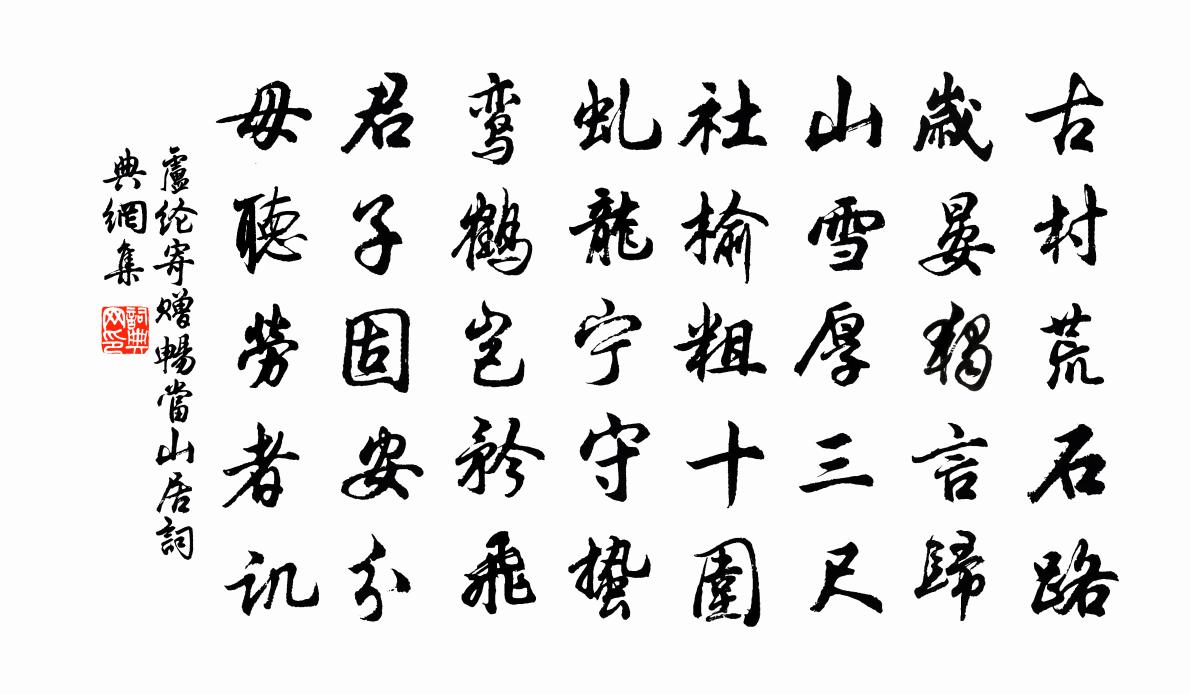 古村荒石路
歲晏獨言歸
山雪厚三尺
社榆粗十圍
虬龍宁守蟄
鸾鶴岂矜飛
君子固安分
毋聽勞者讥
盧纶寄赠暢當山居詞
典網集
詞典
网印